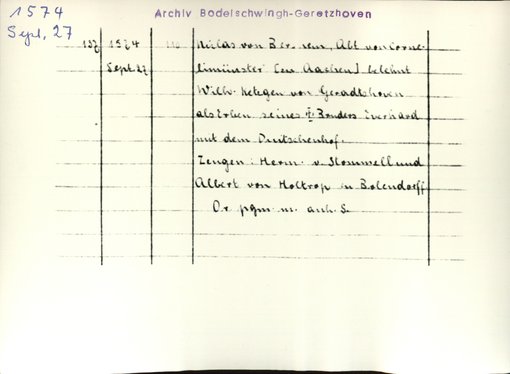 1574
Sept, 27
Archiv Bodelschwingh-Geretzhoven
137 1574 von Abt von Corne-
Sept. 27 limünster [en Aachen] belehnt
Wilh. Ketzgen von Geradtshoven
als Erben seines † Bruders Everhard
mit dem Duitschenhof.
Zeugen: Herm. v. Stommell und
Albert von Holtrop in Bolendorff
Or. pgm. m. anh. S.